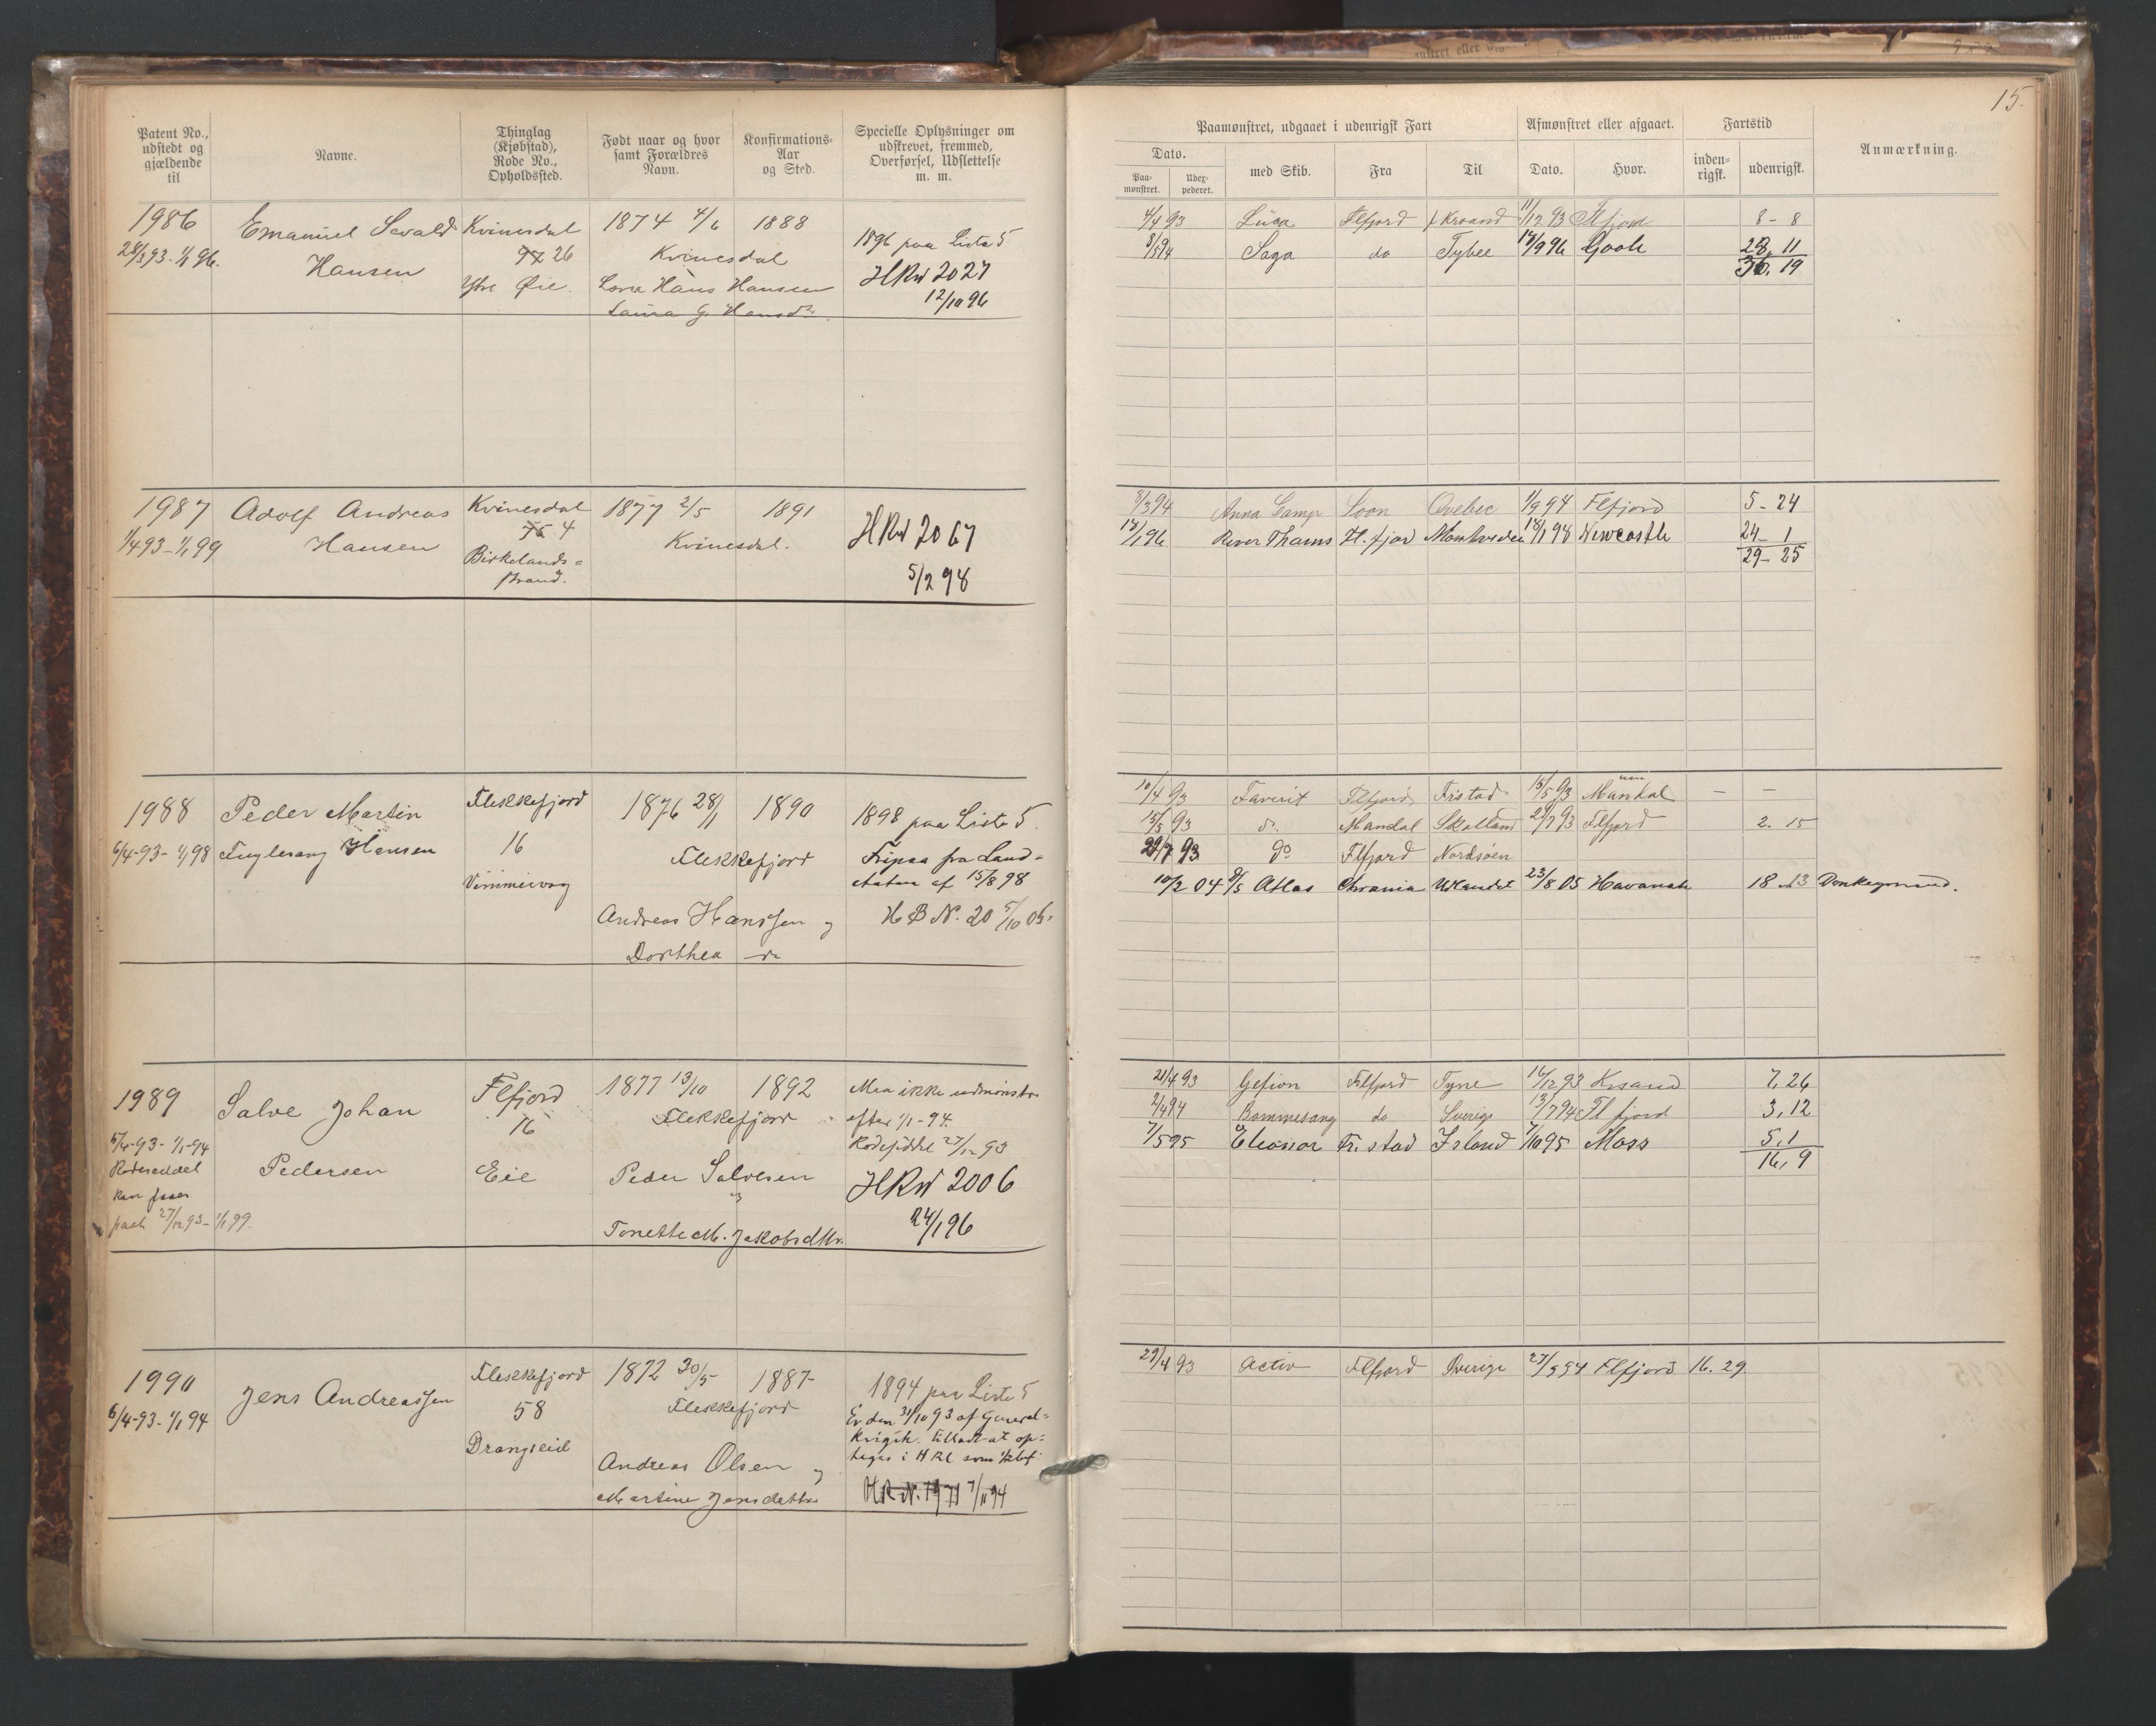 15.
Patent No., udstedt og gjældende til
Navne.
Thinglag (Kjøbstad), Rode No., Opholdssted.
Født naar og hvor samt Forældres Navn.
Konfirmations-Aar og Sted.
Specielle Oplysninger om udskrevet, fremmed, Overførsel, Udslettelse m. m.
Paamønstret, udgaaet i udenrigsk Fart
Dato.
Paa-mønstret.
Udex-pederet.
med Skib.
Fra
Til
Afmønstret eller afgaaet.
Dato.
Hvor.
Fartstid
inden-rigsk.
udenrigsk.
Anmærkning.
1986 Emanuel Sevald Kvinesdal 1874 4/6 1888
28/3 93 - 1/1 96. Hansen 26 Kvinesdal 1896 paa Liste 5
Ytre Øie Hans Hansen HRW 2027
Laura G. Hansdr. 12/10 96
4/4 93 Luca Flfjord 11/12 93 Flfjord 8 - 8
8/5 94 Saga do Tybee 19/9 96 Goole 28. 11
36. 19
1987 Adolf Andreas Kvinesdal 1877 2/5 1891
1/4 93 - 1/1 99 Hansen 75 4 Kvinesdal. HRW 2067
Birkelands=
strand. 5/2 98
8/3 94 Anna Camp Soon Qvebec 1/9 94 Flfjord 5 - 24
17/1 96 River Thams Fl. fjor Montevideo 18/1 98 Newcastle 24 - 1
29 - 25
1988 Peder Martin Flekkefjord 1876 28/1 1890 1898 paa Liste 5.
6/4-93 - 1/1 98 Fuglevang Hansen 16 Flekkefjord Fripas fra Land=
Vimmervog etaten af 15/8 98
Andreas Hanssen og HB N. 20 5/10 05.
Dorthea dr
10/4 93 Favorit Flfjord Fr.stad 15/5 93 Mandal — —
15/5 93 do. Mandal Skotland 29/7 93 Flfjord 2. 15
29/7 93 do Flfjord Nordsøen
10/2 04 9/5 Atlas Chrania Udlandet 23/8 05 Havanah 18 13 Donkeymand.
1989 Salve Johan Flfjord 1877 13/10 1892 Maa ikke udmønstres
16 Flekkefjord efter 1/1-94.
5/4-93 - 1/1-94 Rodeseddel 27/12 93
Rodeseddel Pedersen Eie Peder Salvesen og HRW 2006
kan faaes
paa 27/12 93 - 1/1 99. Tonette M. Jakobsdtr. 24/1 96
21/4 93 Gefion Flfjord Tyne 16/12 93 Krsand 7, 26
2/4 94 Bommesang do Sverige 13/7 94 Fl fjord 3, 12
7/5 95 Eleonor Fr. stad Island 7/10 95 Moss 5, 1
16, 9
1990 Jens Andreassen Flekkefjord 1872 30/5 1887 1894 paa Liste 5
6/4-93 - 1/1 94 58 Flekkefjord Er den 31/10 93 af General=
Drangeid tilladt at op=
Andreas Olsen og tages i HRl som
Martine Jensdatter HR N. 1971 7/11 94
29/4 93 Activ Flfjord Sverige 27/9 94 Flfjord 16. 29.